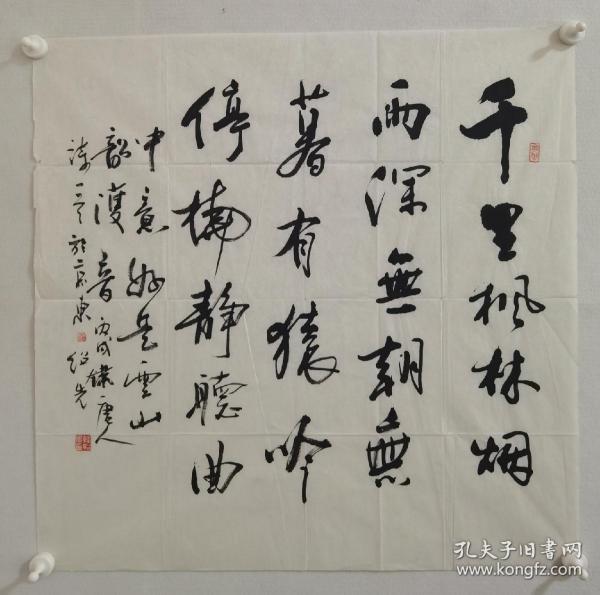 千里枫林烟
雨深無朝無
暮有猿吟
停橈靜聽曲
中意好是雲山
韶濩音 丙戌錄唐人
诗一首於
孔夫子旧书网
www.kongfz.com